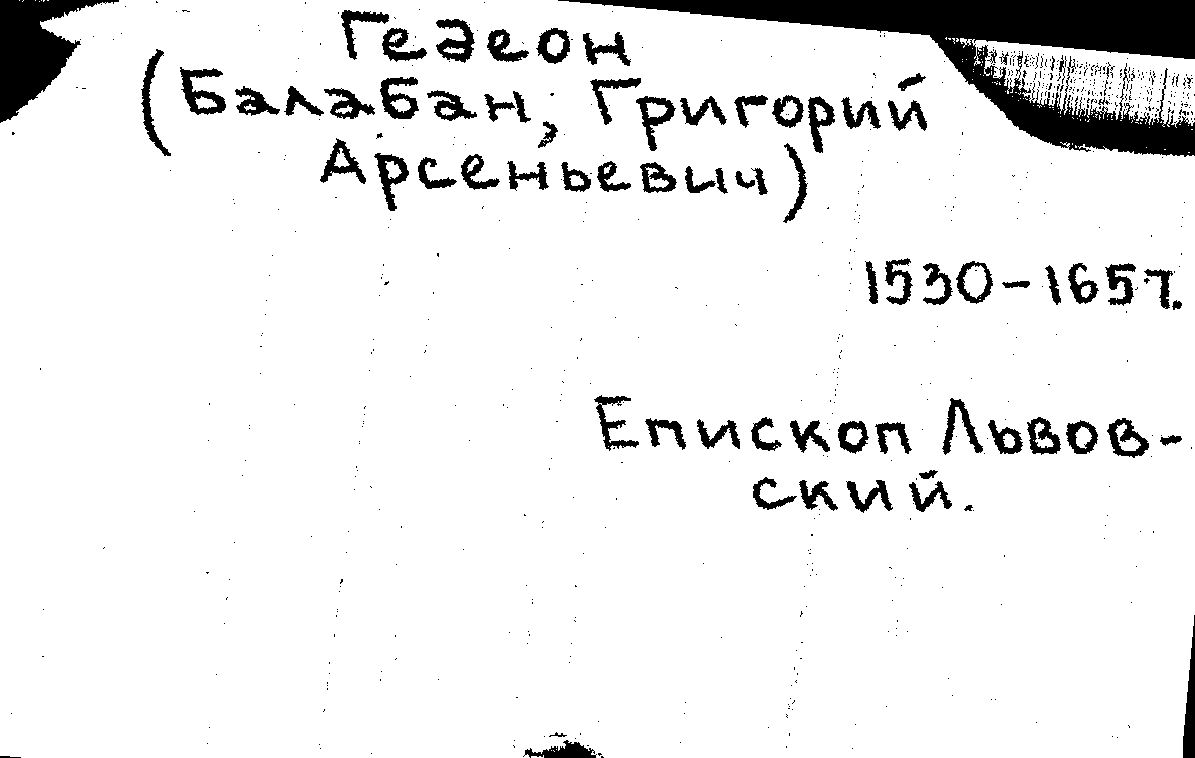 Гедеон
(Балабан, Григорий
Арсеньевич)
1530-1657.
Епископ Львов-
ский.